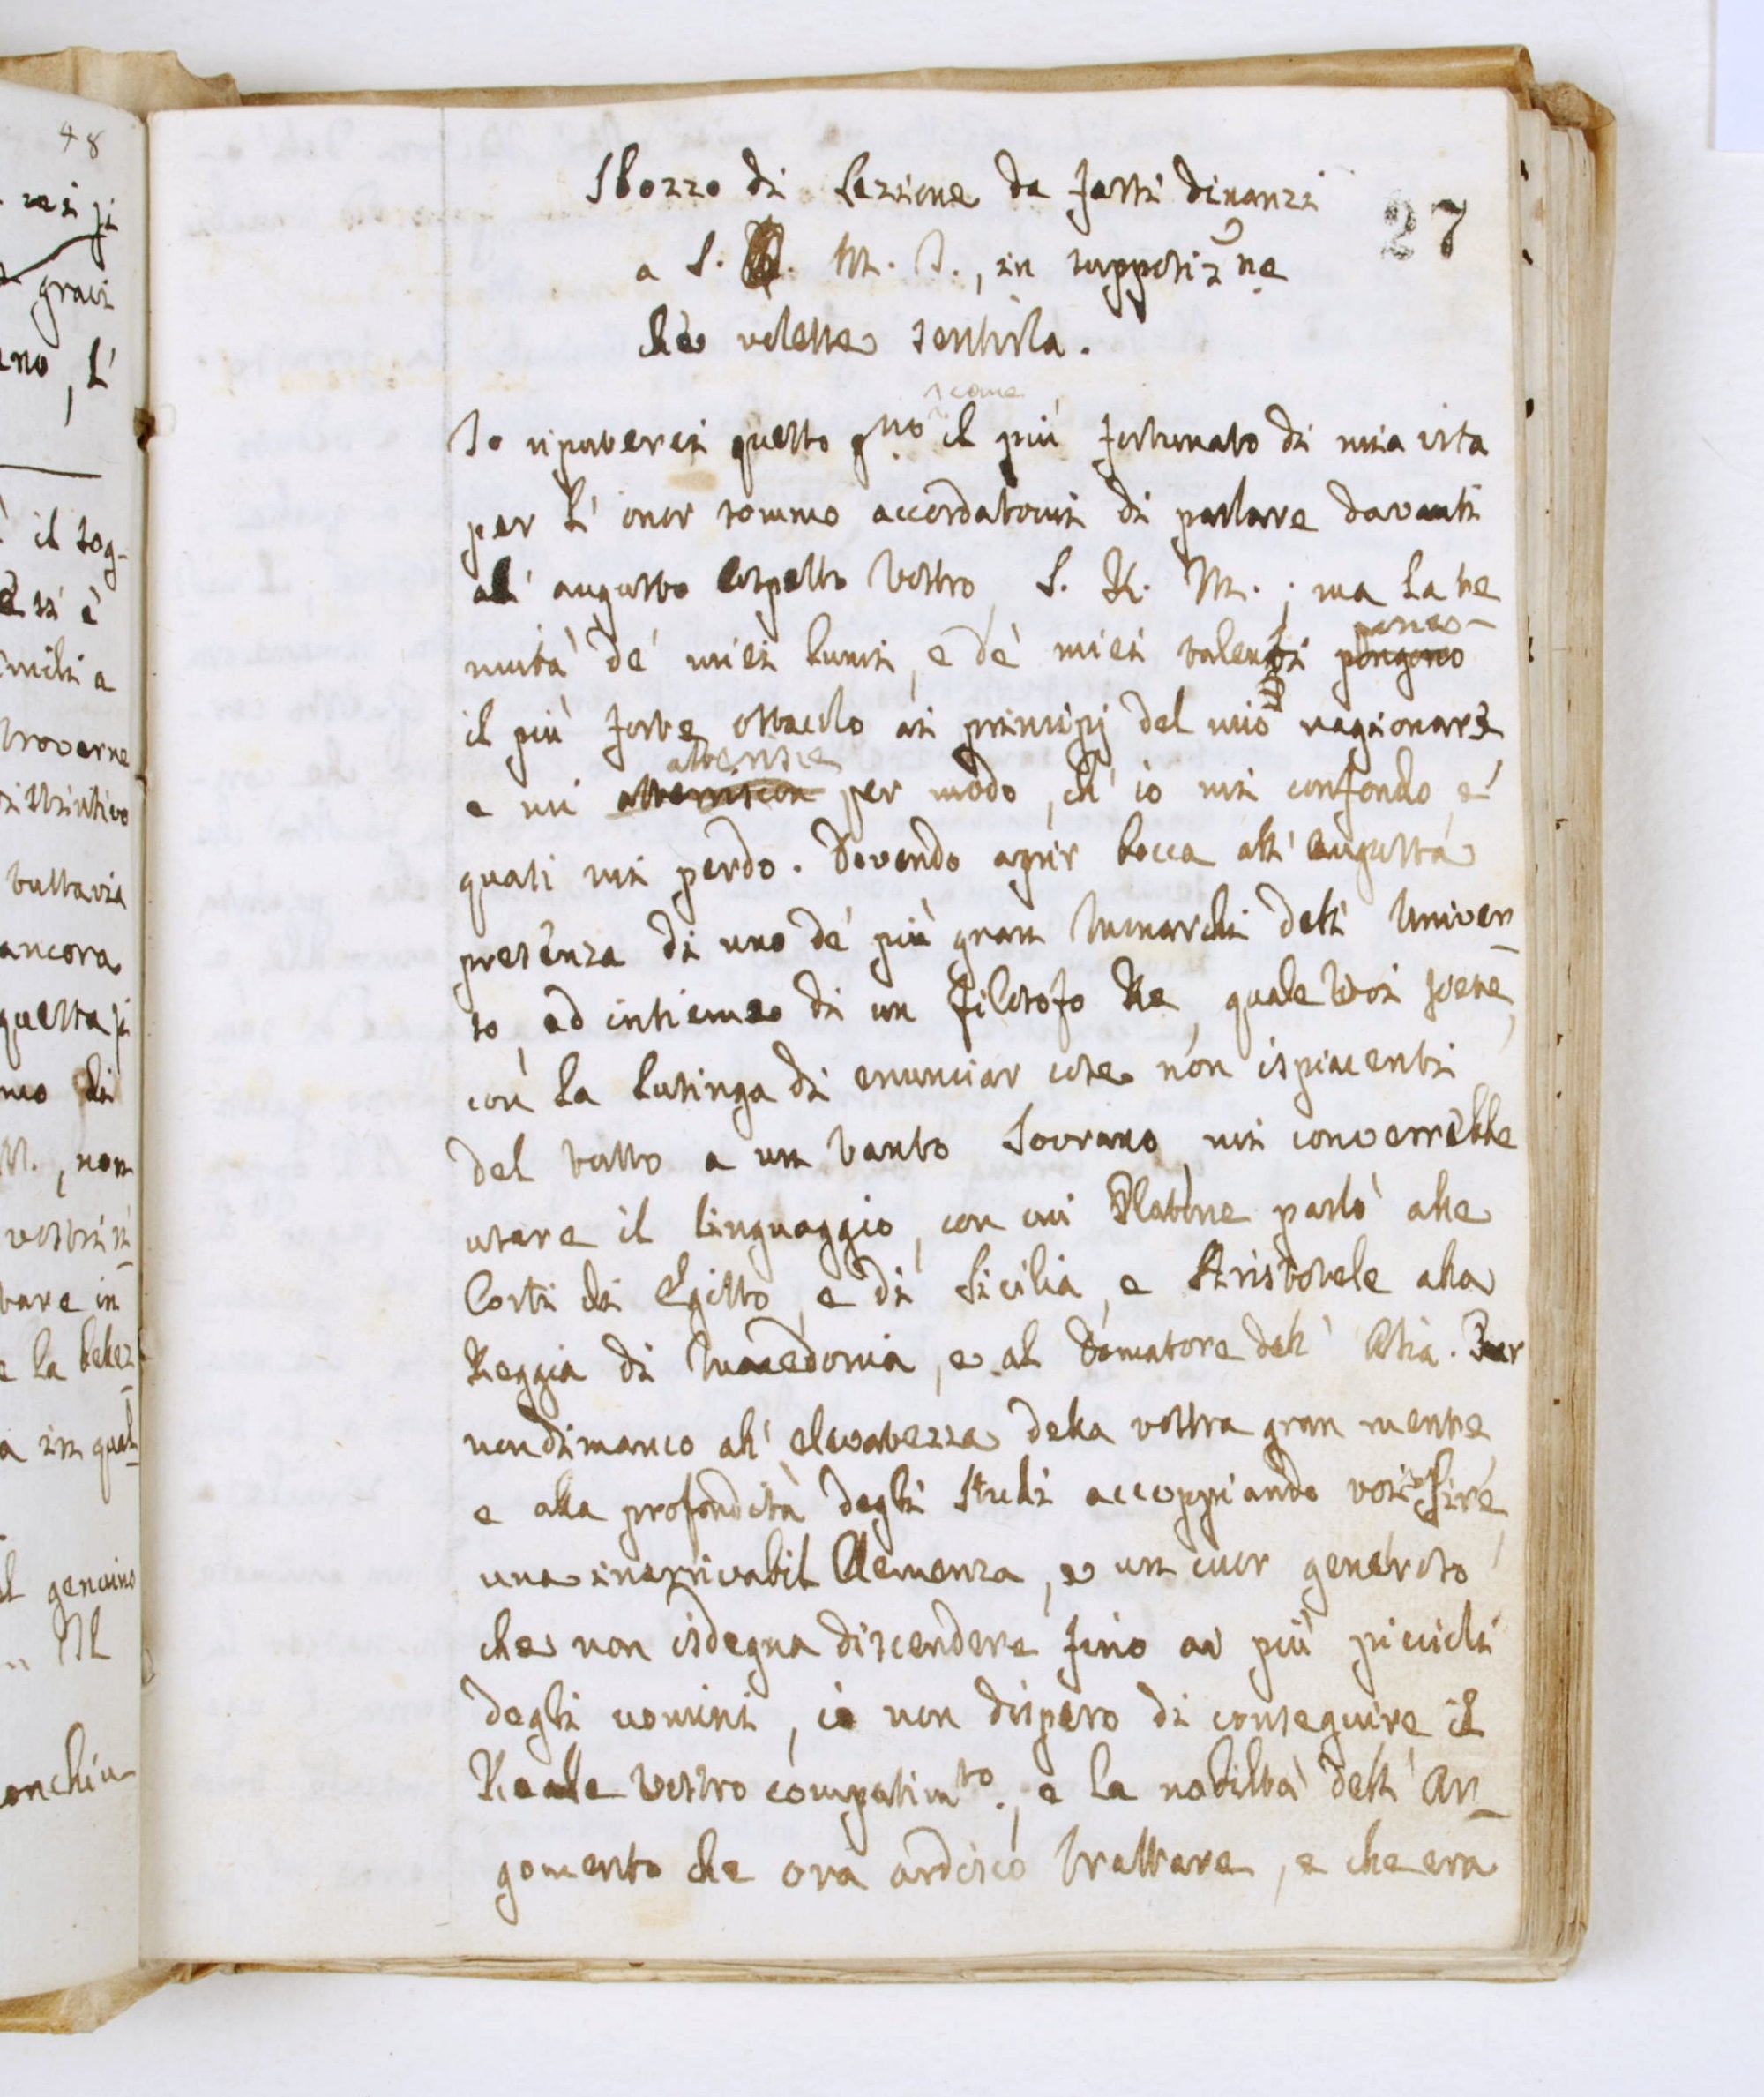 48
27
Sbozzo di Lezione da farsi dinanzi
a S. M. I., in supposizne
che volesse sentirla.
come
Io riputerei questo gno il più fortunato di mia vita
per l'onor sommo accordatomi di parlare davanti
all' augusto cospetto Vostro, S. R. M.; ma la te
nuità de' miei lumi, e de' miei talenti pongono
il più forte ostacolo ai principj del mio ragionare,
atterrisce
e mi atterriscon per modo, ch' io mi confondo, e
quasi mi perdo. Dovendo aprir bocca all' augusta
presenza di uno de' più gran Monarchi dell' Univer
so, ed insieme di un filosofo Re, quale Voi siete,
con la lusinga di enunciar cose non ispiacenti
del tutto a un tanto Sovrano mi converrebbe
usare il linguaggio, con cui Platone parlò alle
Corti di Egitto, e di Sicilia, e Aristotele alla
Reggia di Macedonia, e al Domatore dell' Asia. Pur
nondimanco all' elevatezza della vostra gran mente,
e alla profondità degli Studi accoppiando voi, Sire,
una inarrivabil Clemenza, e un cuor generoso
che non isdegna discendere fino ai più piccioli
degli uomini, io non dispero di conseguire il
Reale Vostro compatimto., e la nobiltà dell' Ar
gomento che ora ardisco trattare, e che era